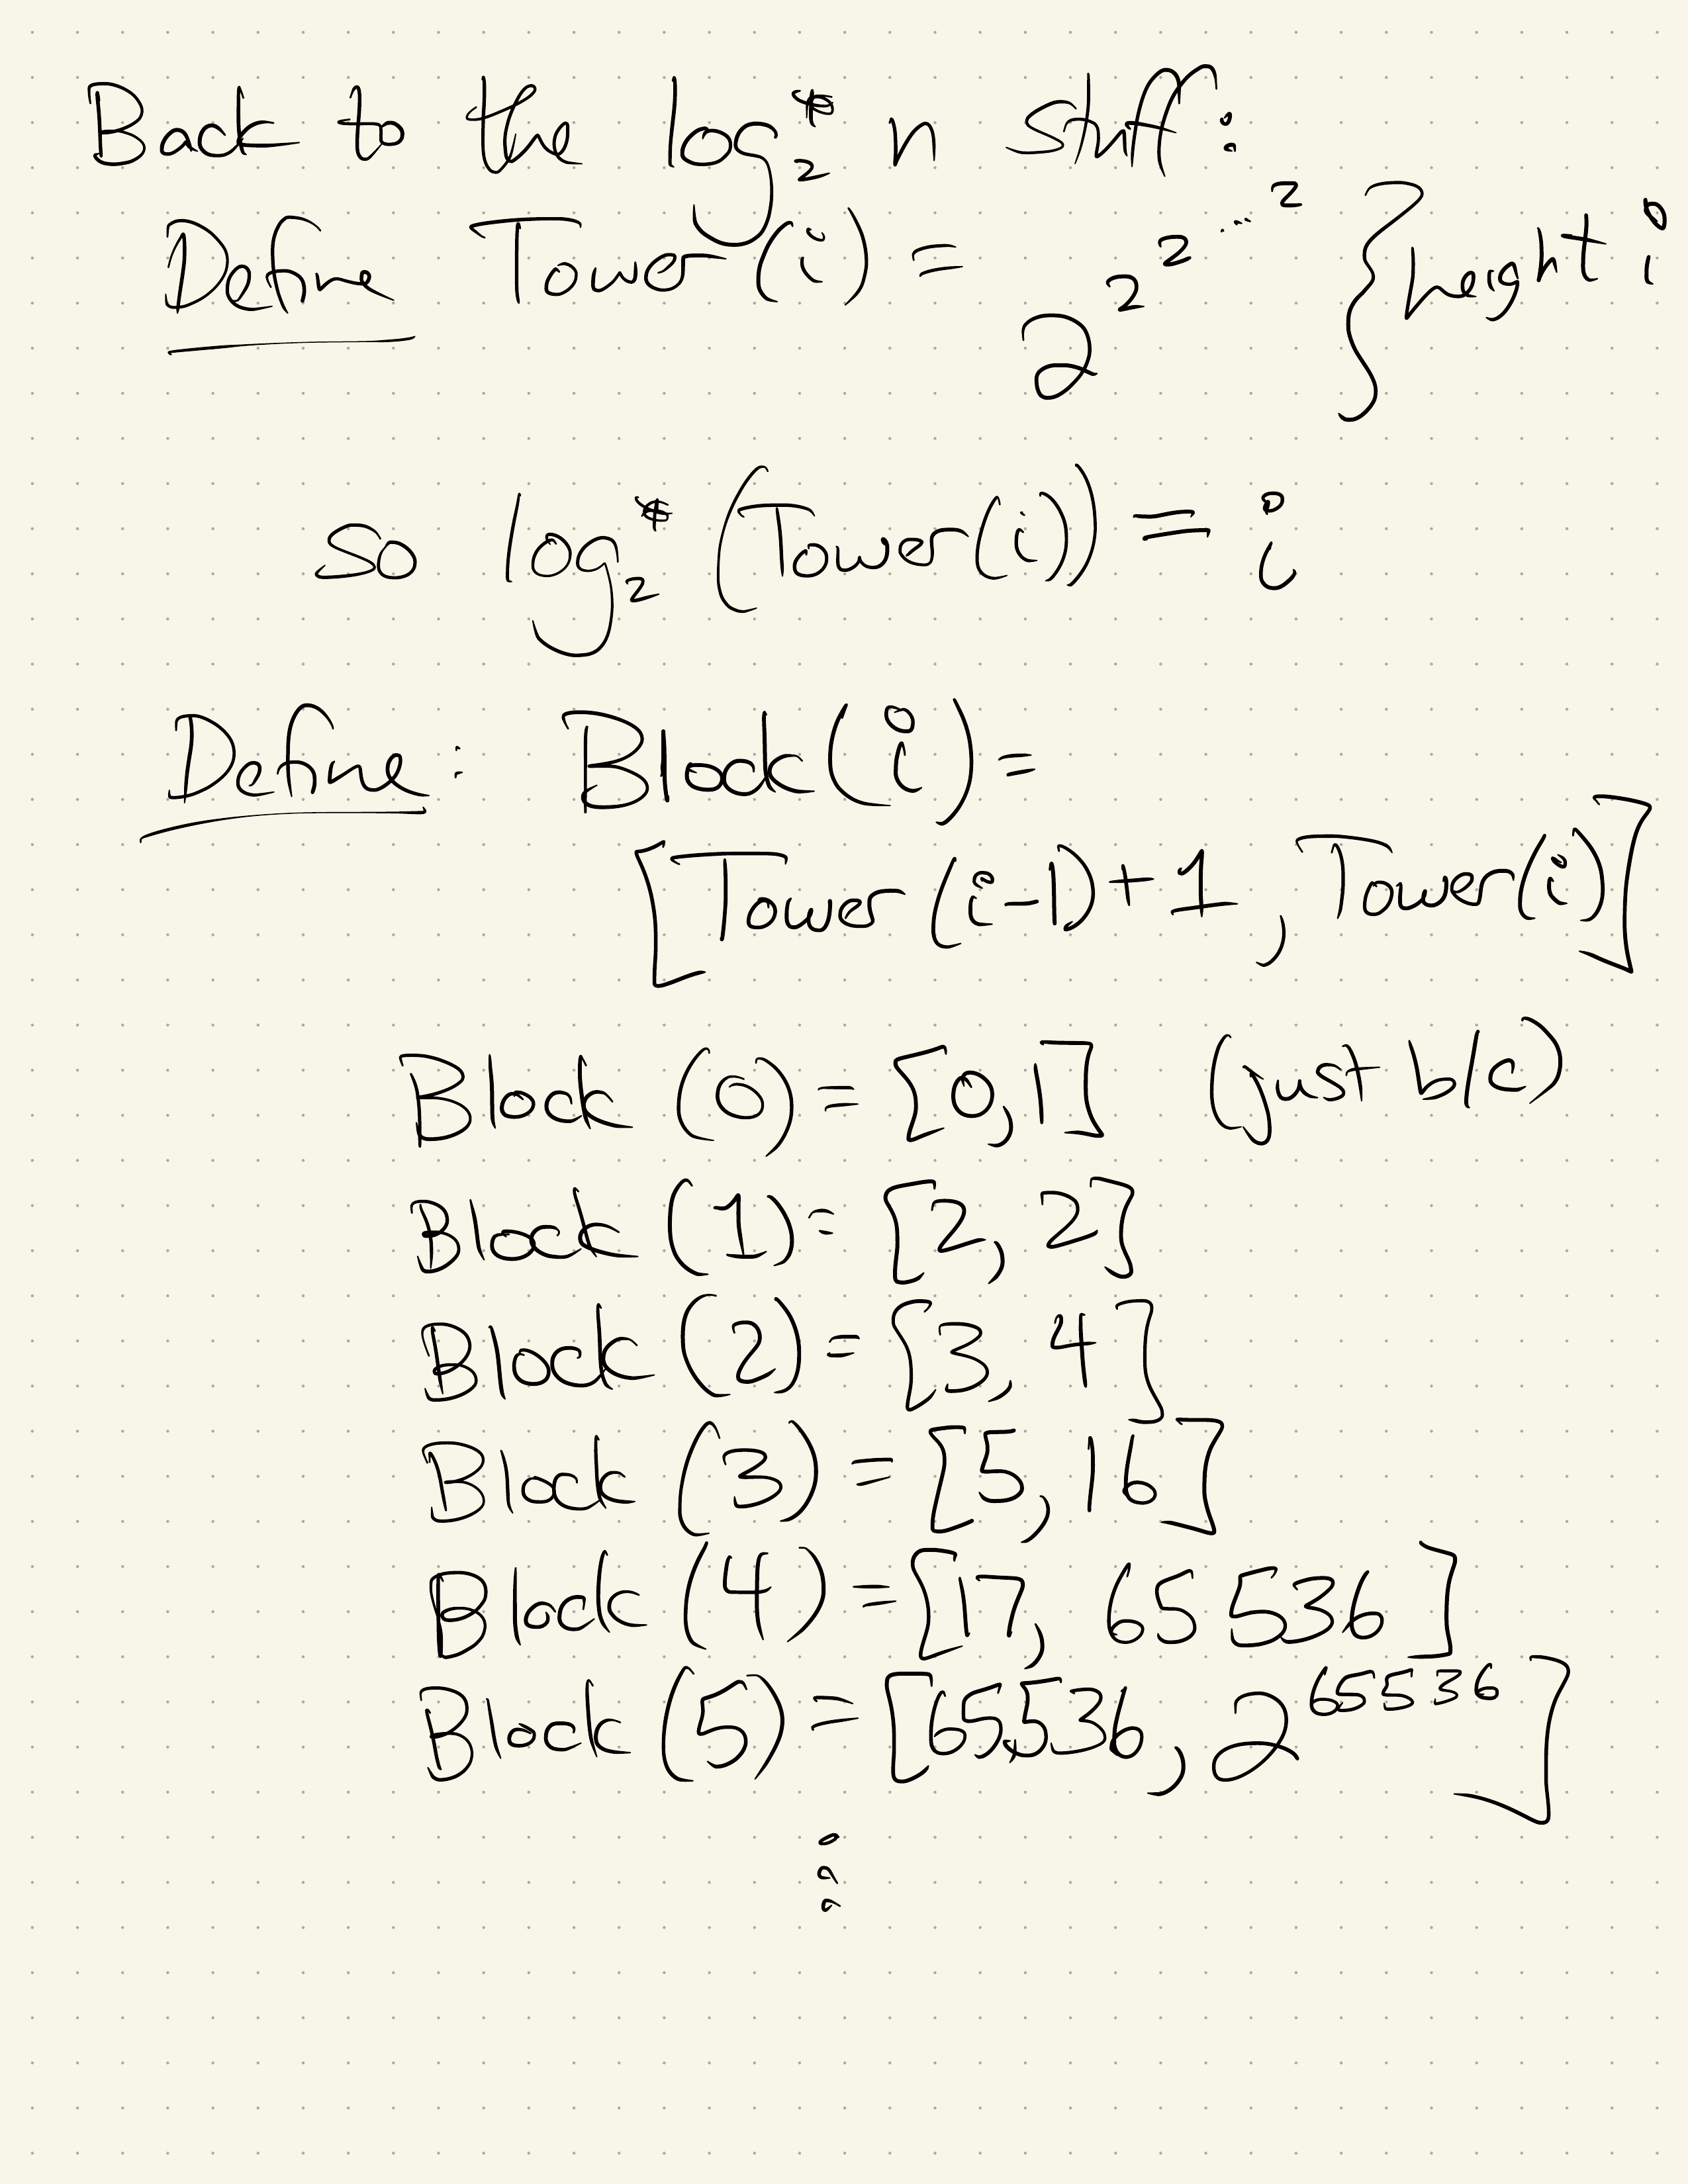 Back to the log₂* n stuff:
Define Tower(i) = 2^2^2^...^2 } height i
so log₂* (Tower(i)) = i
Define: Block(i) =
[Tower(i-1)+1, Tower(i)]
Block (0) = [0,1] (just b/c)
Block (1) = [2, 2]
Block (2) = [3, 4]
Block (3) = [5, 16]
Block (4) = [17, 65536]
Block (5) = [65536, 2^65536]
⋮